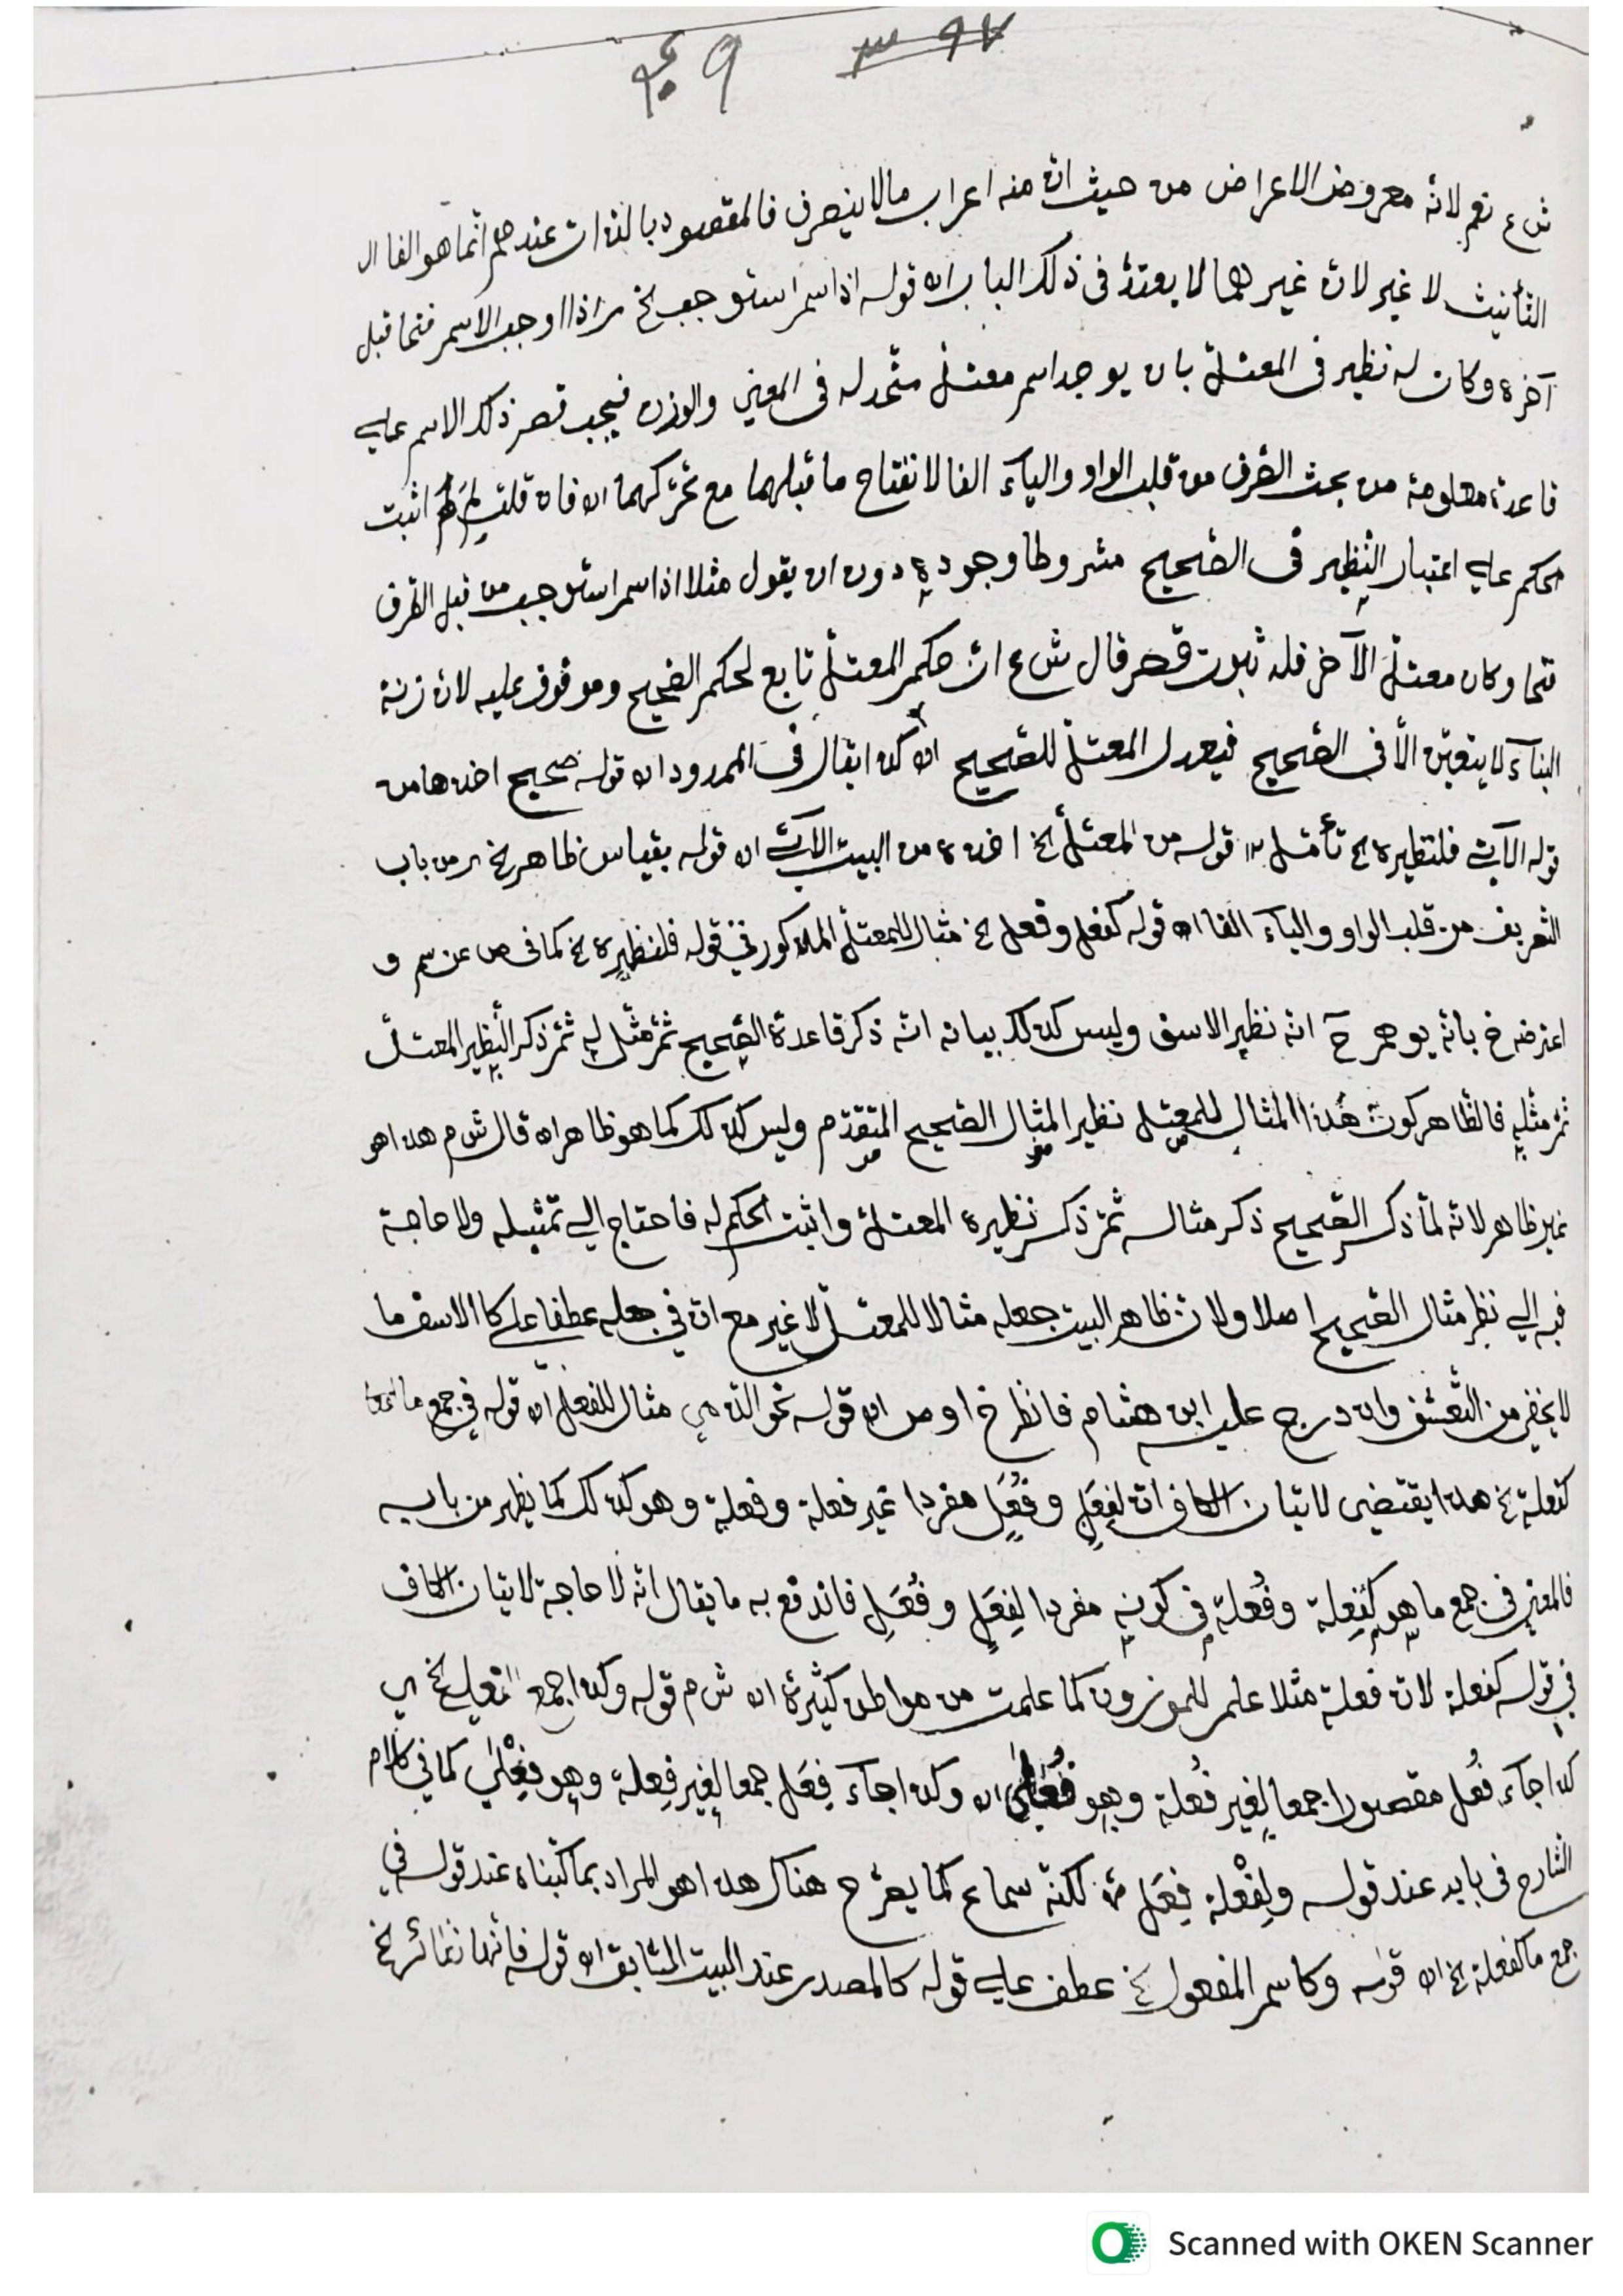 ٣٩٧ ٤٩
ش ع نعم لانّه معروض الاعراض من حيث انّ منه اعراب مالا ينصرف فالمقصود بالذات عندهم انّما هو الفا ال
التأنيث لا غير لانّ غيرهما لا يعتدّ فى ذلك الباب اه قوله اذا اسم استوجب الخ اذا اوجب الاسم فتحا قبل
آخره وكان له نظير فى المعتلّ بان يوجد اسم معتلّ متّحد له فى المعنى والوزن فيجب قصر ذلك الاسم على
قاعدة معلومة من بحث الصّرف من قلب الواو والياء الفا لانفتاح ما قبلهما مع تحرّكهما اه فان قلت لِمَ اثبت
الحكم على اعتبار النّظير فى الصّحيح مشروطا وجوده دون ان يقول مثلا اذا اسم استوجب من قبل الطّرف
فتحا وكان معتلّ الآخر فله ثبوت قصر قال ش ع انّ حكم المعتلّ تابع لحكم الصّحيح وموقوف عليه لانّ زنة
البناء لا يتعيّن الّا فى الصّحيح فيعدل المعتلّ للصّحيح اه كذا يقال فى الممدود اه قوله صحيح اخذها من
قوله الآتى فلنظيره الخ تأمّل اه قوله من المعتلّ الخ اخذه من البيت الآتى اه قوله بقياس ظاهر الخ من باب
التّعريف من قلب الواو والياء الفا اه قوله كفعل وفعل الخ مثال للمعتلّ المذكور فى قوله فلنظيره الخ كما فى ص عن سم و
اعترضه خ بانّه يوهم حَ انّه نظير الاسف وليس كذلك بيانه انّه ذكر قاعدة الصّحيح ثمّ مثّل له ثمّ ذكر النّظير المعتلّ
ثمّ مثّله فالظّاهر كون هٰذا المثال للمعتلّ نظير المثال الصّحيح المتقدّم وليس كذلك كما هو ظاهر اه قال ش م هذا هو
غير ظاهر لانّه لمّا ذكر الصّحيح ذكر مثاله ثمّ ذكر نظيره المعتلّ واثبت الحكم له فاحتاج الى تمثيله ولا حاجة
فيه الى نظر مثال الصّحيح اصلا ولانّ ظاهر البيت جعله مثالا للمعتلّ لا غير مع انّ فى جعله عطفا على كالاسف ما
لا يخفى من التّعسّف وان درج عليه ابن هشام فانظر خ او ص اه قوله نحو الدّمى مثال للفعل اه قوله فى جمع ما
كفعلة الخ هذا يقتضى لاتيان الكاف انّ لفِعَل وفُعَل مفردا غير فعلة وفعلة وهو كذلك كما يظهر من بابه
فالمعنى فى جمع ما هو كفِعلة وفُعلة فى كونه مفردا لفِعَل وفُعَل فاندفع به ما يقال انّه لا حاجة لاتيان الكاف
فى قوله كفعلة لانّ فعلة مثلا علم للموزون كما علمت من مواطن كثيرة اه ش م قوله وكذا جمع الخ
كذا جاء فُعل مقصورا جمعا لغير فُعلة وهو فُعْلىٰ اه وكذا جاء فِعَل جمعا لغير فِعلة وهو فِعْلىٰ كما فى كلام
الشّارح فى بابه عند قوله ولفِعْلة فِعَل لكنّه سماع كما يصرّح هناك هذا هو المراد بما كتبناه عند قوله فى
جمع ما كفعلة الخ اه قوله وكاسم المفعول الخ عطف على قوله كالمصدر عند البيت السّابق اه قوله فانّها نظائر الخ
Scanned with OKEN Scanner